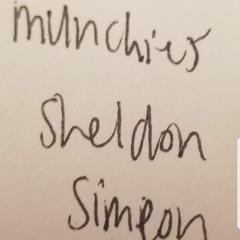 munchies
Sheldon
Simeon